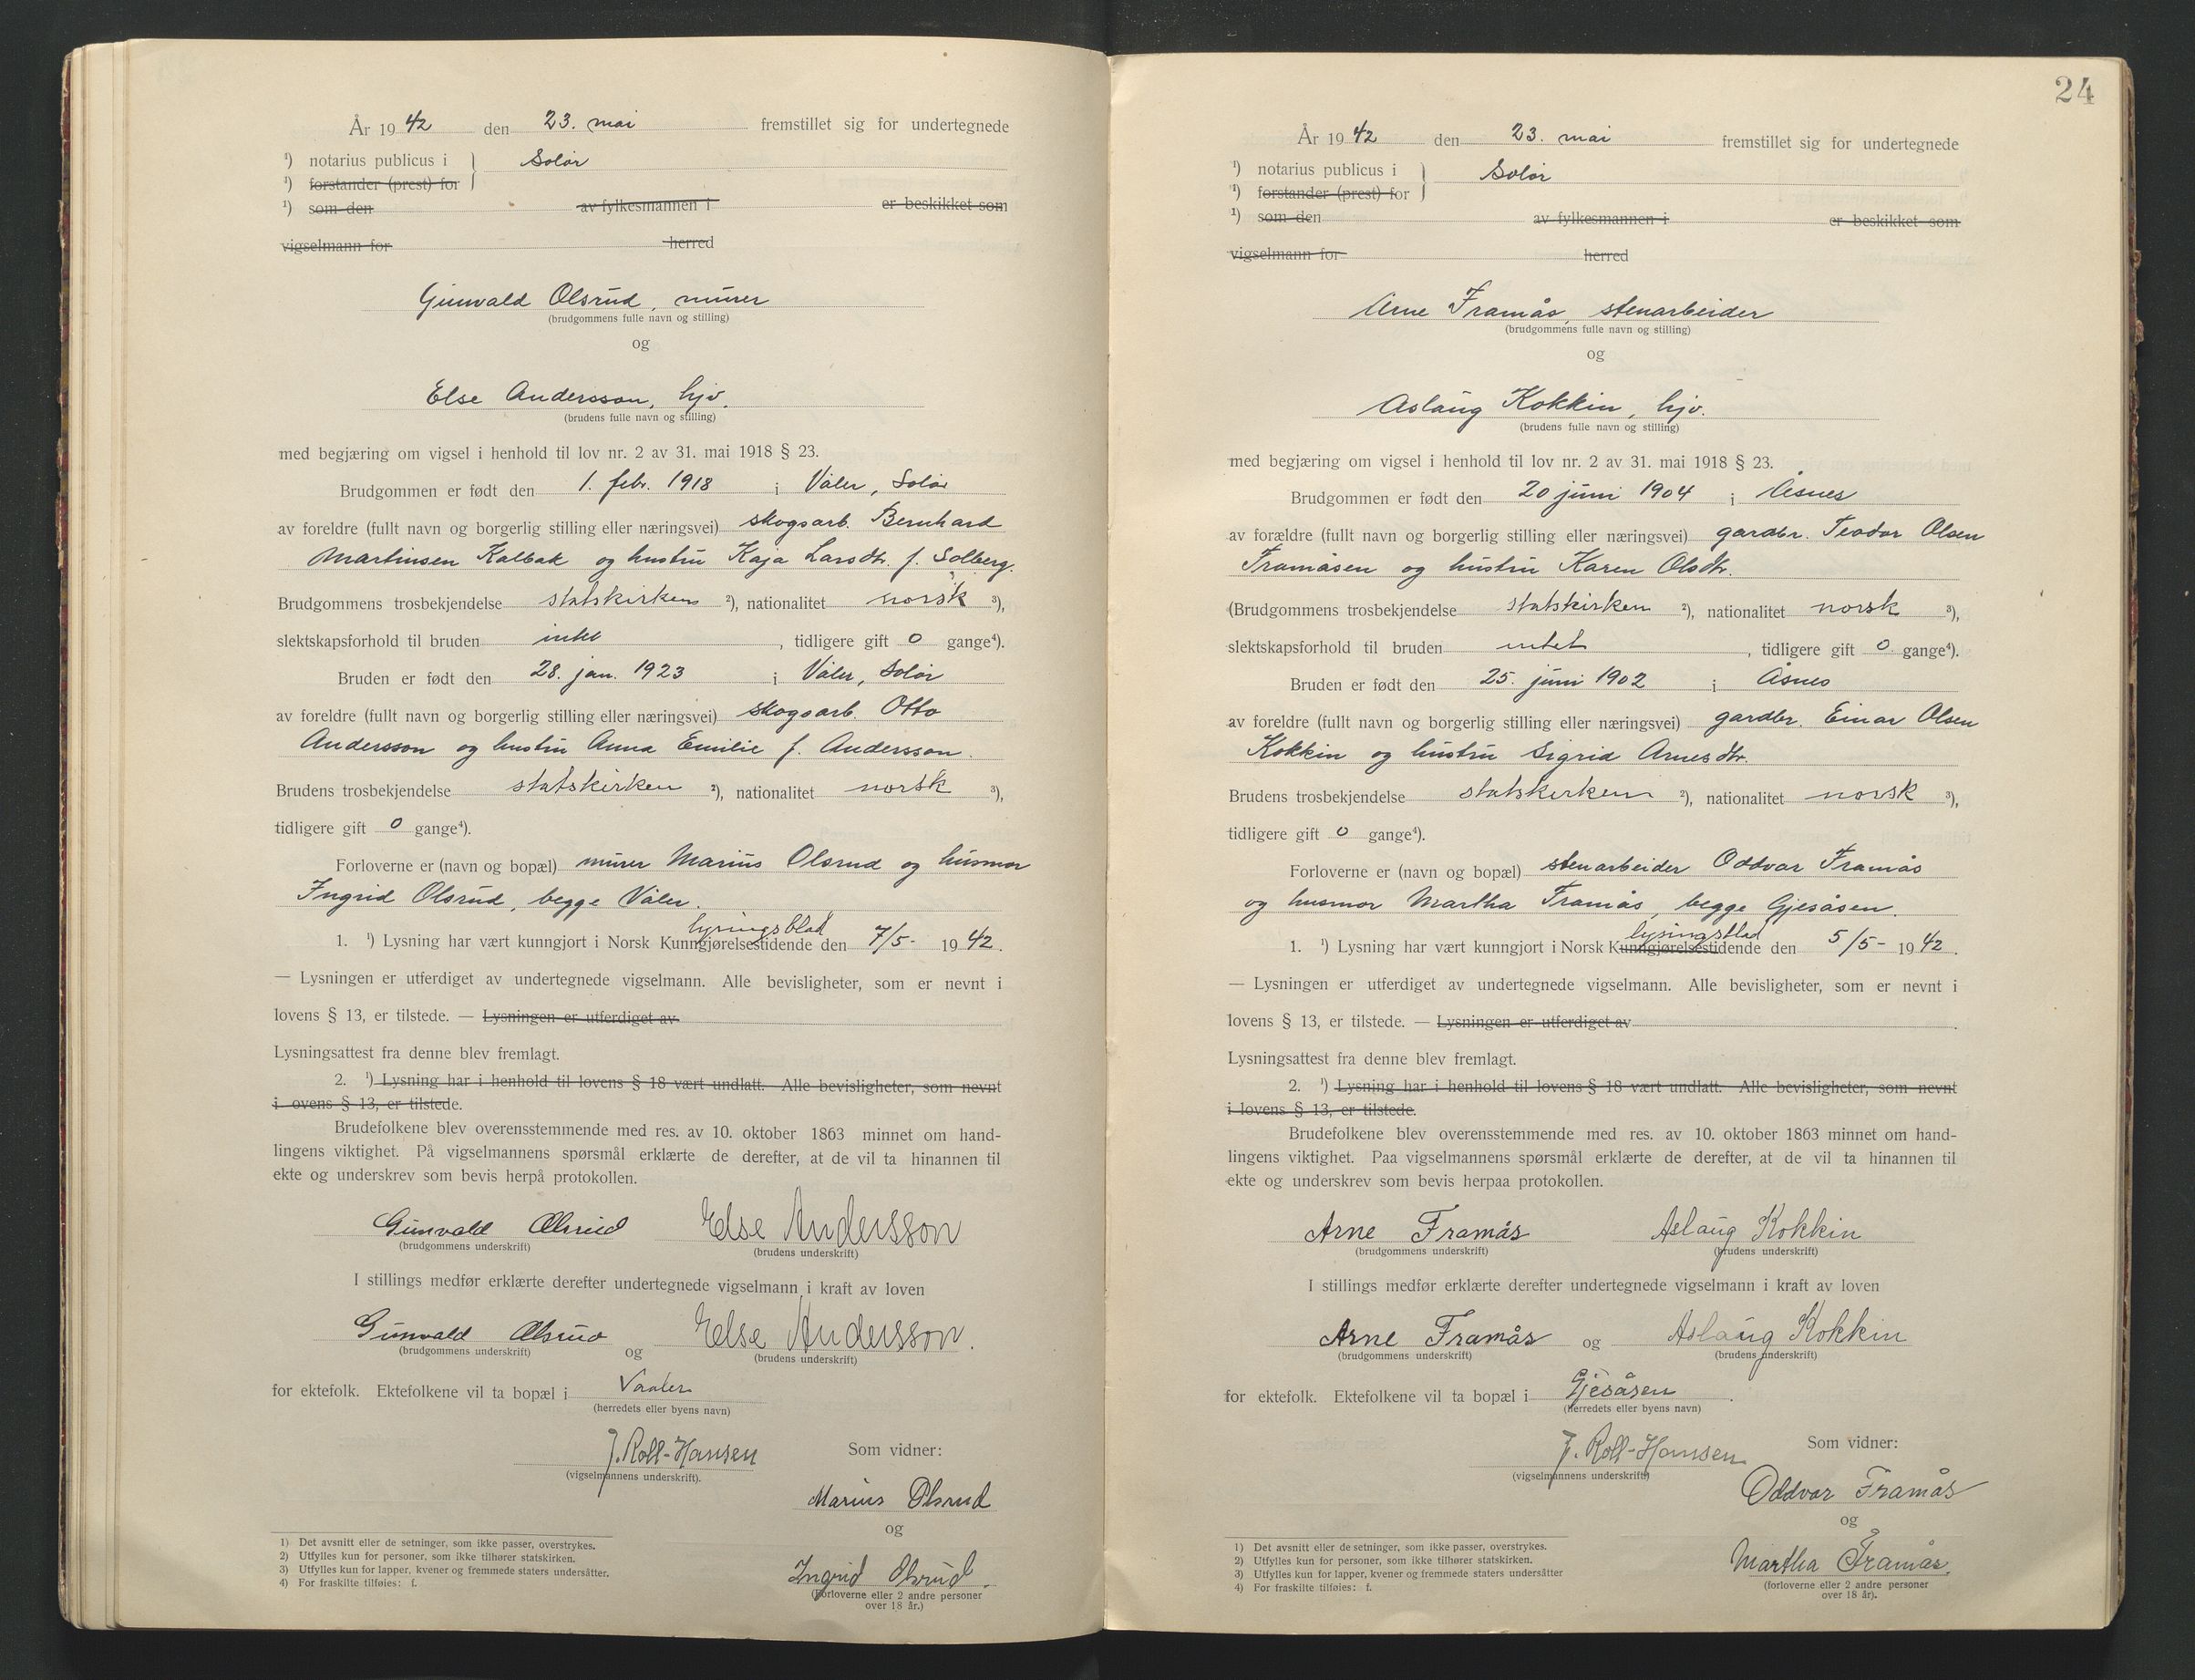 År 1942 den 23. mai fremstillet sig for undertegnede
¹) notarius publicus i } Solør
¹) forstander (prest) for
¹) som den av fylkesmannen i er beskikket som
vigselmann for herred
Gunvald Olsrud, murer
(brudgommens fulle navn og stilling)
og
Else Andersson, hjv.
(brudens fulle navn og stilling)
med begjæring om vigsel i henhold til lov nr. 2 av 31. mai 1918 § 23.
Brudgommen er født den 1. febr. 1918 i Våler, Solør
av foreldre (fullt navn og borgerlig stilling eller næringsvei) skogsarb. Bernhard
Martinsen Kalbak og hustru Kaja Larsdtr. f. Solberg.
Brudgommens trosbekjendelse statskirken ²), nationalitet norsk ³),
slektskapsforhold til bruden intet , tidligere gift 0 gange⁴).
Bruden er født den 28. jan. 1923 i Våler, Solør
av foreldre (fullt navn og borgerlig stilling eller næringsvei) skogsarb. Otto
Andersson og hustru Anna Emilie f. Andersson.
Brudens trosbekjendelse statskirken ²), nationalitet norsk ³),
tidligere gift 0 gange⁴).
Forloverne er (navn og bopæl) murer Marius Olsrud og husmor
Ingrid Olsrud, begge Våler.
lysingsblad
1. ¹) Lysning har vært kunngjort i Norsk Kunngjørelsestidende den 7/5- 1942.
— Lysningen er utferdiget av undertegnede vigselmann. Alle bevisligheter, som er nevnt i
lovens § 13, er tilstede. — Lysningen er utferdiget av
Lysningsattest fra denne blev fremlagt.
2. ¹) Lysning har i henhold til lovens § 18 vært undlatt. Alle bevisligheter, som nevnt
i ovens § 13, er tilstede.
Brudefolkene blev overensstemmende med res. av 10. oktober 1863 minnet om hand-
lingens viktighet. På vigselmannens spørsmål erklærte de derefter, at de vil ta hinannen til
ekte og underskrev som bevis herpå protokollen.
Gunvald Olsrud Else Andersson
(brudgommens underskrift) (brudens underskrift)
I stillings medfør erklærte derefter undertegnede vigselmann i kraft av loven
Gunvald Olsrud og Else Andersson.
(brudgommens underskrift) (brudens underskrift)
for ektefolk. Ektefolkene vil ta bopæl i Vaaler
(herredets eller byens navn)
J. Roll-Hansen Som vidner:
(vigselmannens underskrift).
Marius Olsrud
og
Ingrid Olsrud.
(Forloverne eller 2 andre personer
over 18 år.)
1) Det avsnitt eller de setninger, som ikke passer, overstrykes.
2) Utfylles kun for personer, som ikke tilhører statskirken.
3) Utfylles kun for lapper, kvener og fremmede staters undersåtter.
4) For fraskilte tilføies: f.
24
År 1942 den 23. mai fremstillet sig for undertegnede
¹) notarius publicus i } Solør
¹) forstander (prest) for
¹) som den av fylkesmannen i er beskikket som
vigselmann for herred
Arne Framås, stenarbeider
(brudgommens fulle navn og stilling)
og
Aslaug Kokkin, hjv.
(brudens fulle navn og stilling)
med begjæring om vigsel i henhold til lov nr. 2 av 31. mai 1918 § 23.
Brudgommen er født den 20 juni 1904 i Åsnes
av forældre (fullt navn og borgerlig stilling eller næringsvei) gardbr. Teodor Olsen
Framåsen og hustru Karen Olsdtr.
(Brudgommens trosbekjendelse statskirken ²), nationalitet norsk ³),
slektskapsforhold til bruden intet , tidligere gift 0 gange⁴).
Bruden er født den 25. juni 1902 i Åsnes
av foreldre (fullt navn og borgerlig stilling eller næringsvei) gardbr. Einar Olsen
Kokkin og hustru Sigrid Arnesdtr.
Brudens trosbekjendelse statskirken ²), nationalitet norsk ³),
tidligere gift 0 gange⁴).
Forloverne er (navn og bopæl) stenarbeider Oddvar Framås
og husmor Martha Framås, begge Gjesåsen.
lysingsblad
1. ¹) Lysning har vært kunngjort i Norsk Kunngjørelsestidende den 5/5- 1942.
— Lysningen er utferdiget av undertegnede vigselmann. Alle bevisligheter, som er nevnt i
lovens § 13, er tilstede. — Lysningen er utferdiget av .
Lysningsattest fra denne blev fremlagt.
2. ¹) Lysning har i henhold til lovens § 18 vært undlatt. Alle bevisligheter, som nevnt
i lovens § 13, er tilstede.
Brudefolkene blev overensstemmende med res. av 10. oktober 1863 minnet om hand-
lingens viktighet. Paa vigselmannens spørsmål erklærte de derefter, at de vil ta hinannen til
ekte og underskrev som bevis herpaa protokollen.
Arne Framås Aslaug Kokkin
(brudgommens underskrift) (brudens underskrift)
I stillings medfør erklærte derefter undertegnede vigselmann i kraft av loven
Arne Framås og Aslaug Kokkin
(brudgommens underskrift) (brudens underskrift)
for ektefolk. Ektefolkene vil ta bopæl i Gjesåsen .
(herredets eller byens navn)
J. Roll-Hansen Som vidner:
(vigselmannens underskrift)
Oddvar Framås
og
Martha Framås.
(forloverne eller 2 andre personer
over 18 år).
1) Det avsnitt eller de setninger, som ikke passer, overstrykes.
2) Utfylles kun for personer, som ikke tilhører statskirken.
3) Utfylles kun for lapper, kvener og fremmede staters undersåtter
4) For fraskilte tilføies: f.